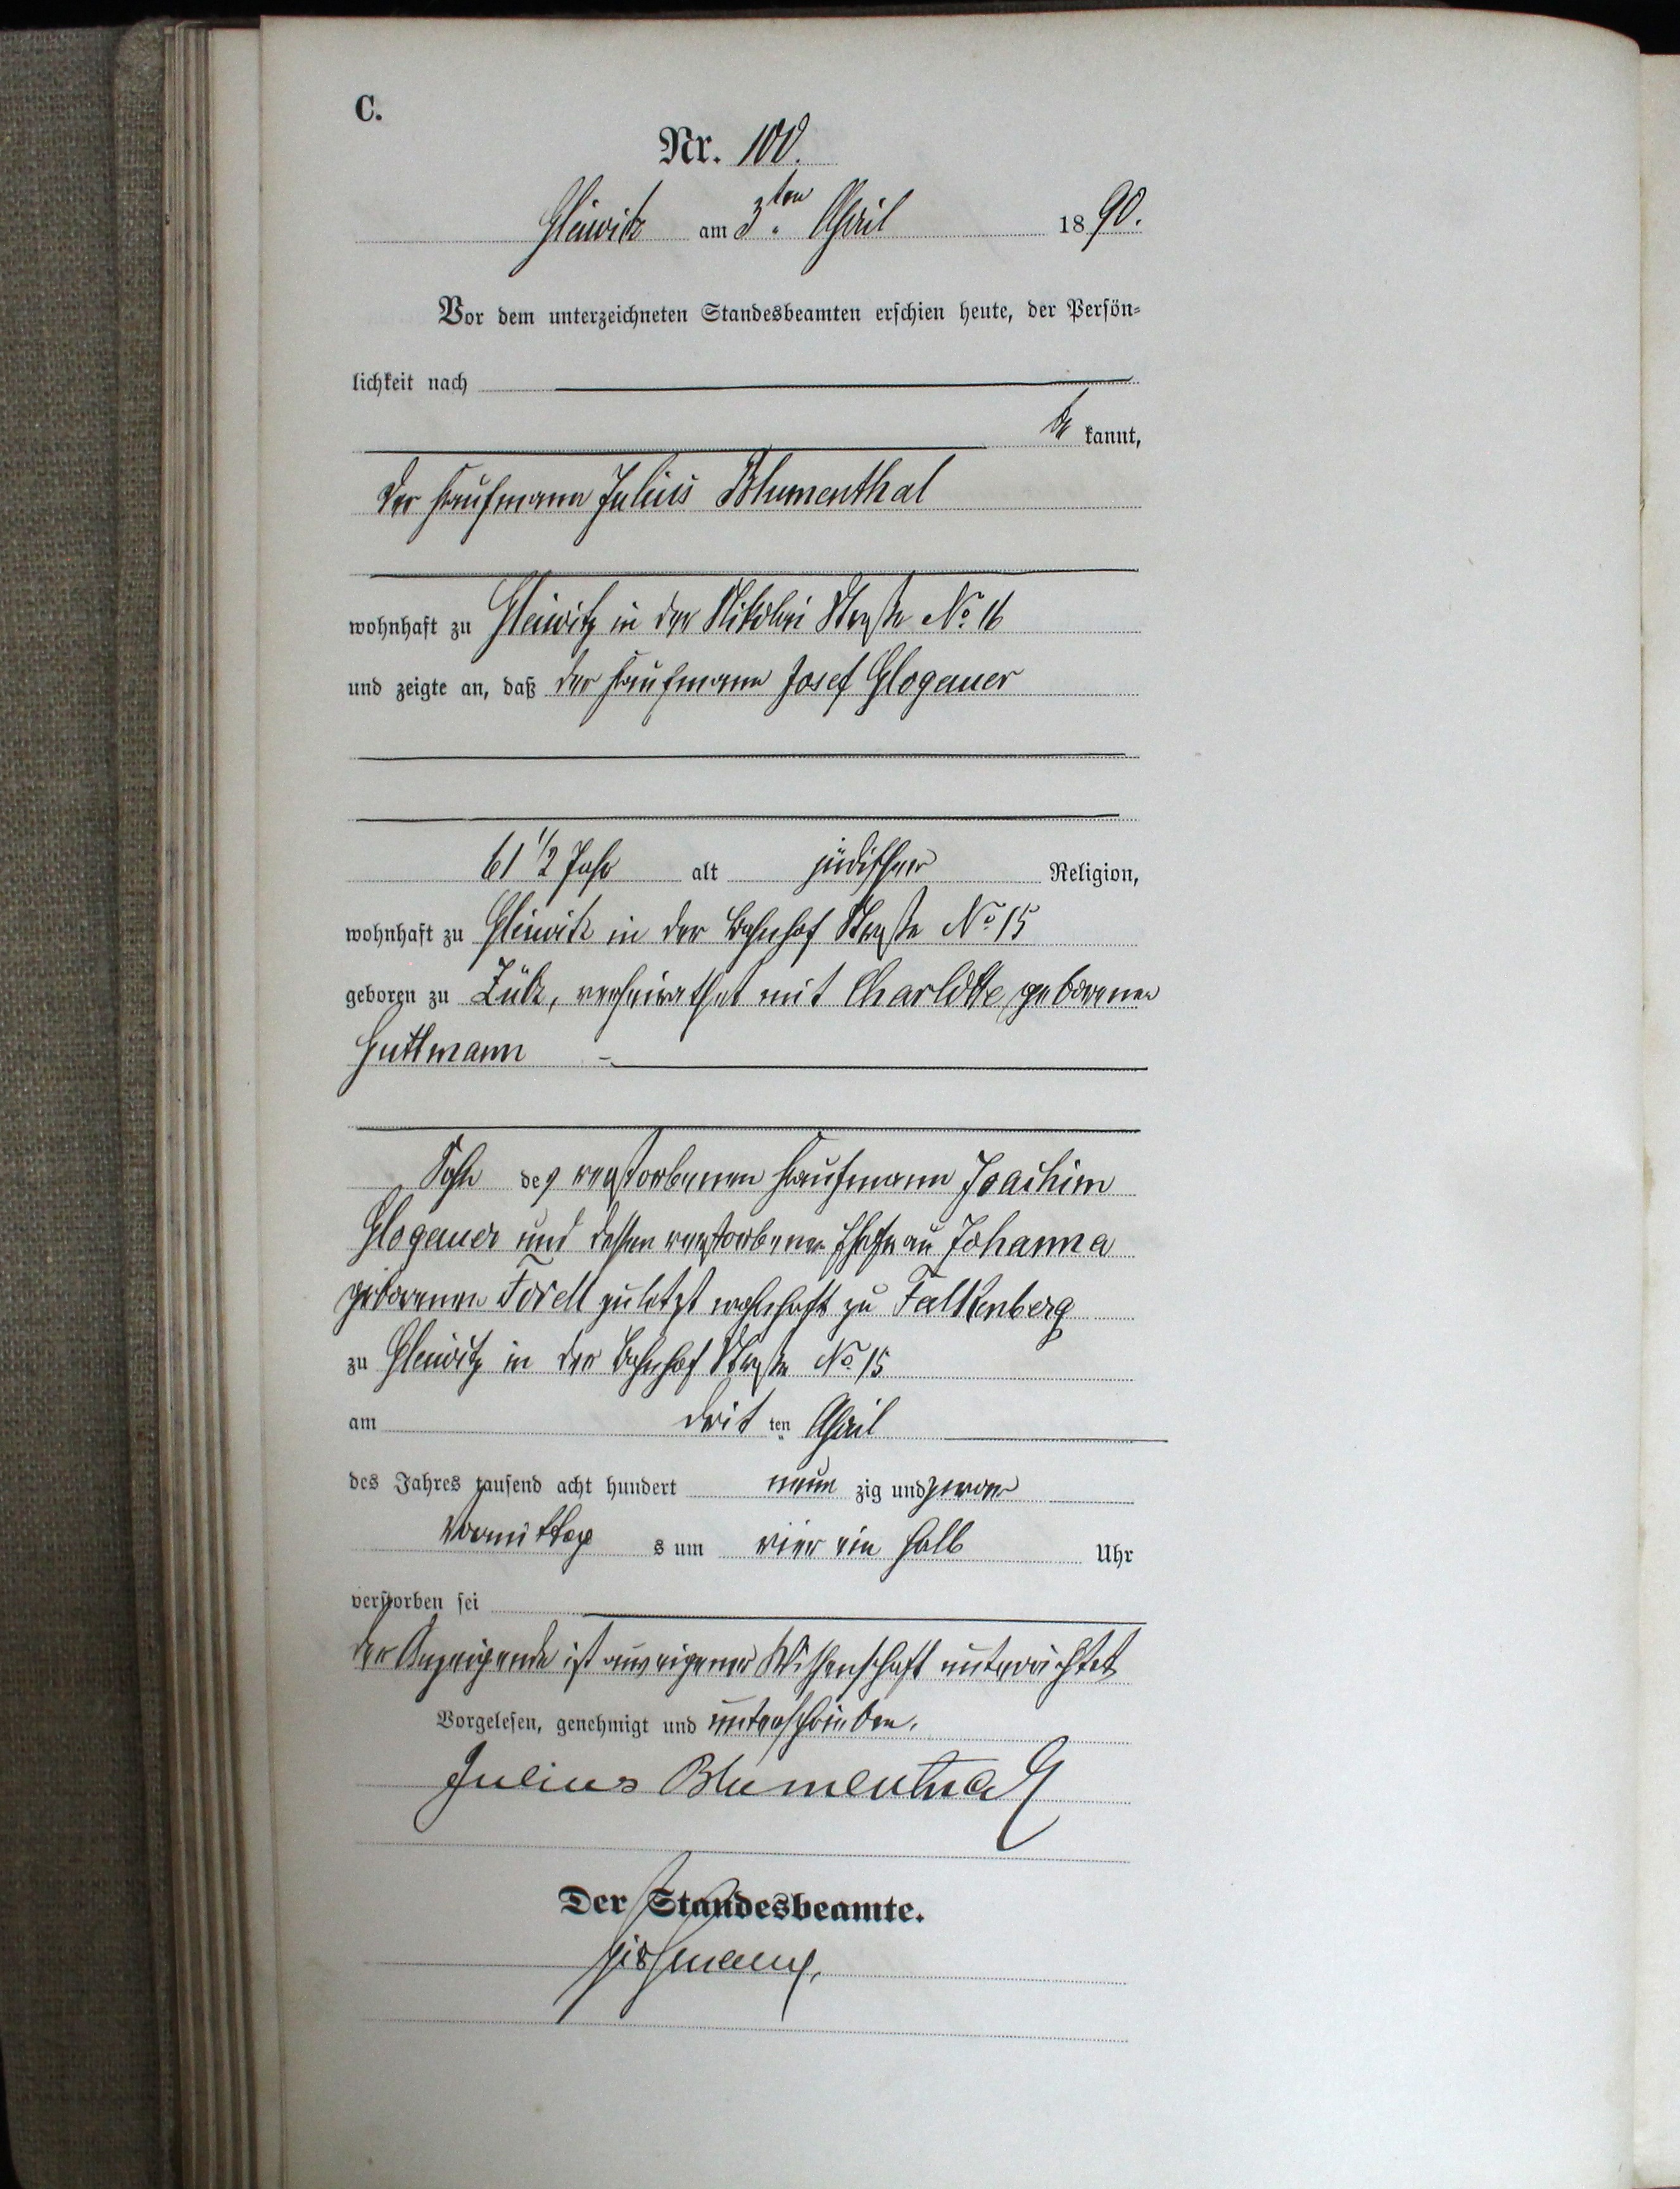 C.
Nr. 100.
Gleiwitz am 3ten April 1890.
Vor dem unterzeichneten Standesbeamten erschien heute, der Persön-
lichkeit nach
be kannt,
der Kaufmann Julius Blumenthal
wohnhaft zu Gleiwitz in der Nikolai Straße No. 16
und zeigte an, daß der Kaufmann Josef Glogauer
61 1/2 Jahr alt jüdischer Religion,
wohnhaft zu Gleiwitz in der Bahnhof Straße No 15
geboren zu Zülz, verheirathet mit Charlotte geborenen
Guttmann
Sohn des verstorbenen Kaufmann Joachim
Glogauer und dessen verstorbenen Ehefrau Johanna
geborenen zuletzt wohnhaft zu Falkenberg
zu Gleiwitz in der Bahnhof Straße No. 15
am drit ten April
des Jahres tausend acht hundert neun zig und zwar
Vormittag s um vier ein halb Uhr
verstorben sei
der Anzeigende ist aus eigener Wissenschaft unterrichtet
Vorgelesen, genehmigt und unterschrieben.
Julius Blumenthal
Der Standesbeamte.